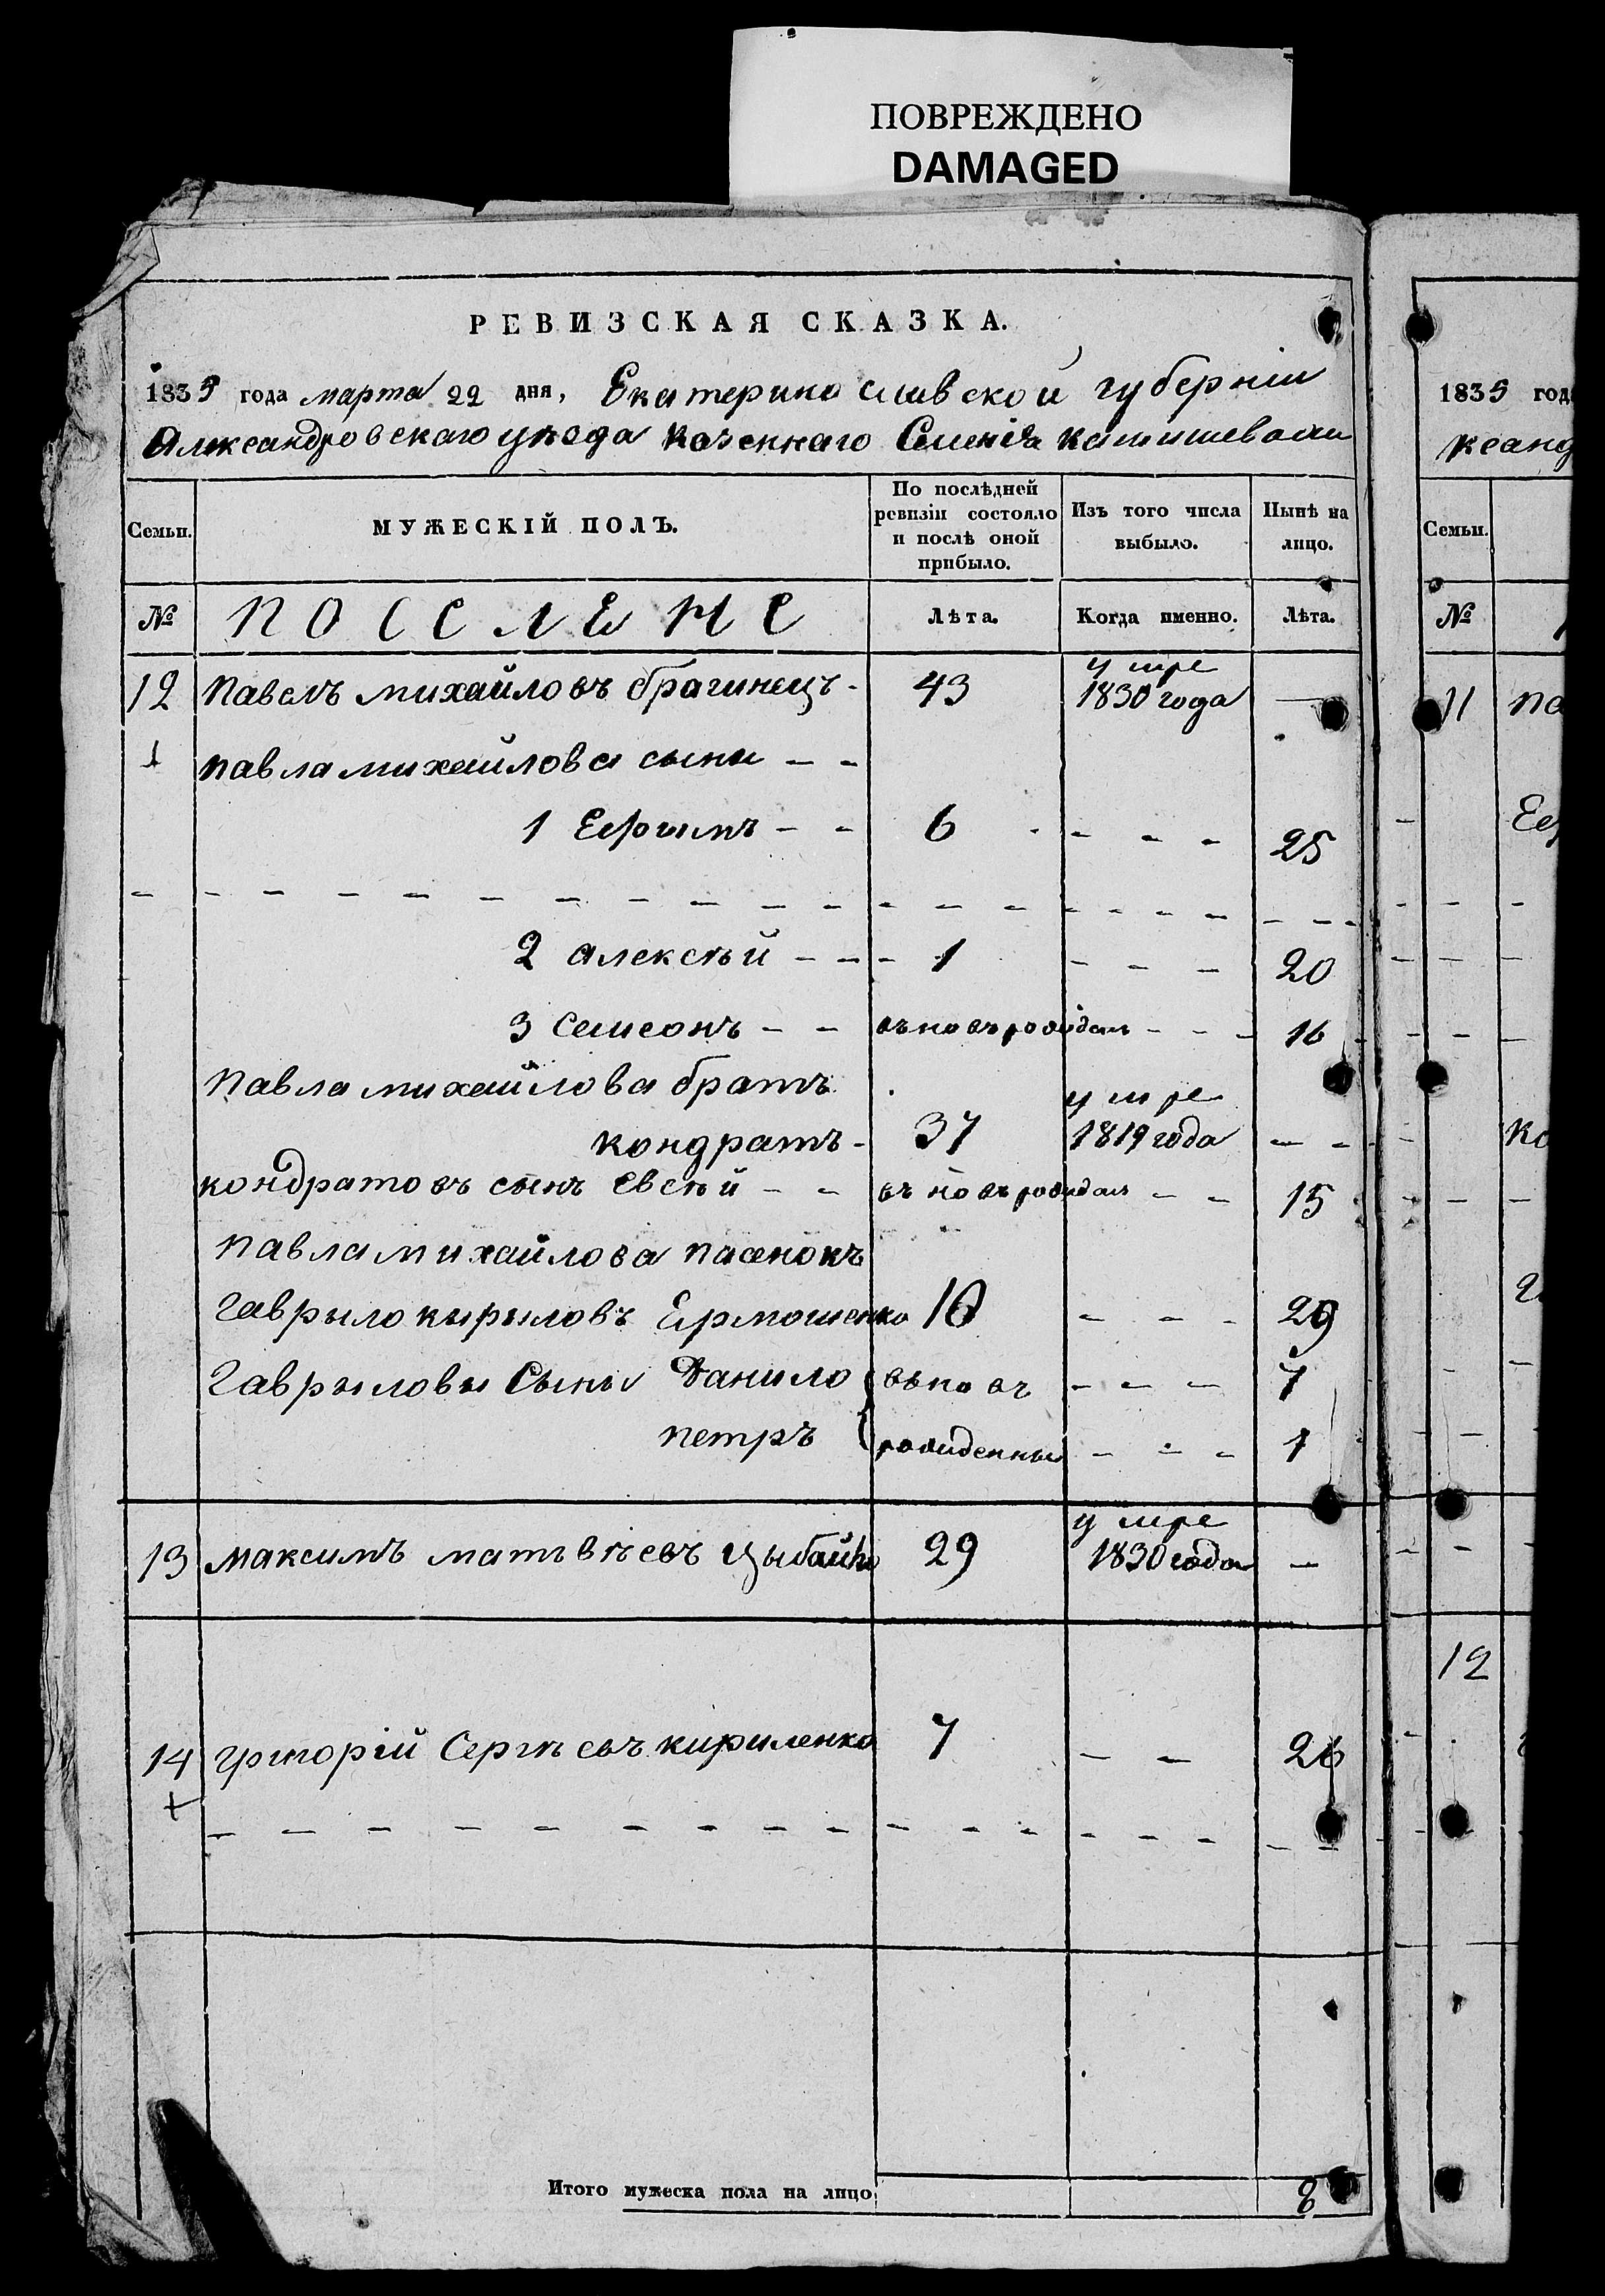 ПОВРЕЖДЕНО
DAMAGED
РЕВИЗСКАЯ СКАЗКА.
1835 года марта 22 дня, Екатеринославской губерніи
Александровскаго уѣзда Козеннаго Селенія камишевахи
Семьи.
МУЖЕСКІЙ ПОЛЪ.
По послѣдней ревизіи состояло и послѣ оной прибыло.
Изъ того числа выбыло.
Нынѣ на лицо.
№ ПОСЕЛЕНЕ Лѣта. Когда именно. Лѣта.
12 Павелъ михайловъ брагинецъ - 43 умре 1830 года —
павла михайлова сыни - -
1 Ефримъ - - 6 - - - 25
2 алексѣй - - - 1 - - - 20
3 Самсонъ - - въновъ рожден - - - 16
Павла михайлова братъ
кондратъ - 37 умре 1819 года - -
кондратовъ сынъ Евсѣй - - въновъ рожден - - 15
павла михайлова пасенокъ
гаврыло кырыловъ Ермошенко 10 - - - 29
Гаврыловы Сыны Данило вьновъ - - - 7
петръ рожденны - - - 1
13 максимъ матвѣевъ Цыбайко 29 умре 1830 года —
14 григорій Сергѣевъ кириленко 7 - - 26
Итого мужеска пола на лицо 8
1835 год
ксанд
Семьи.
№
11 па
Еф
ко
12